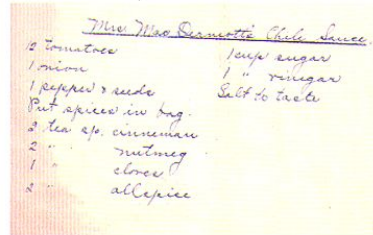 Mrs. MacDermott's Chili Sauce.
12 tomatoes
1 onion
1 pepper & seeds
Put spices in bag.
2 tea sp. cinneman
2 " nutmeg
1 " cloves
2 " allspice
1 cup sugar
1 " vinegar
Salt to taste